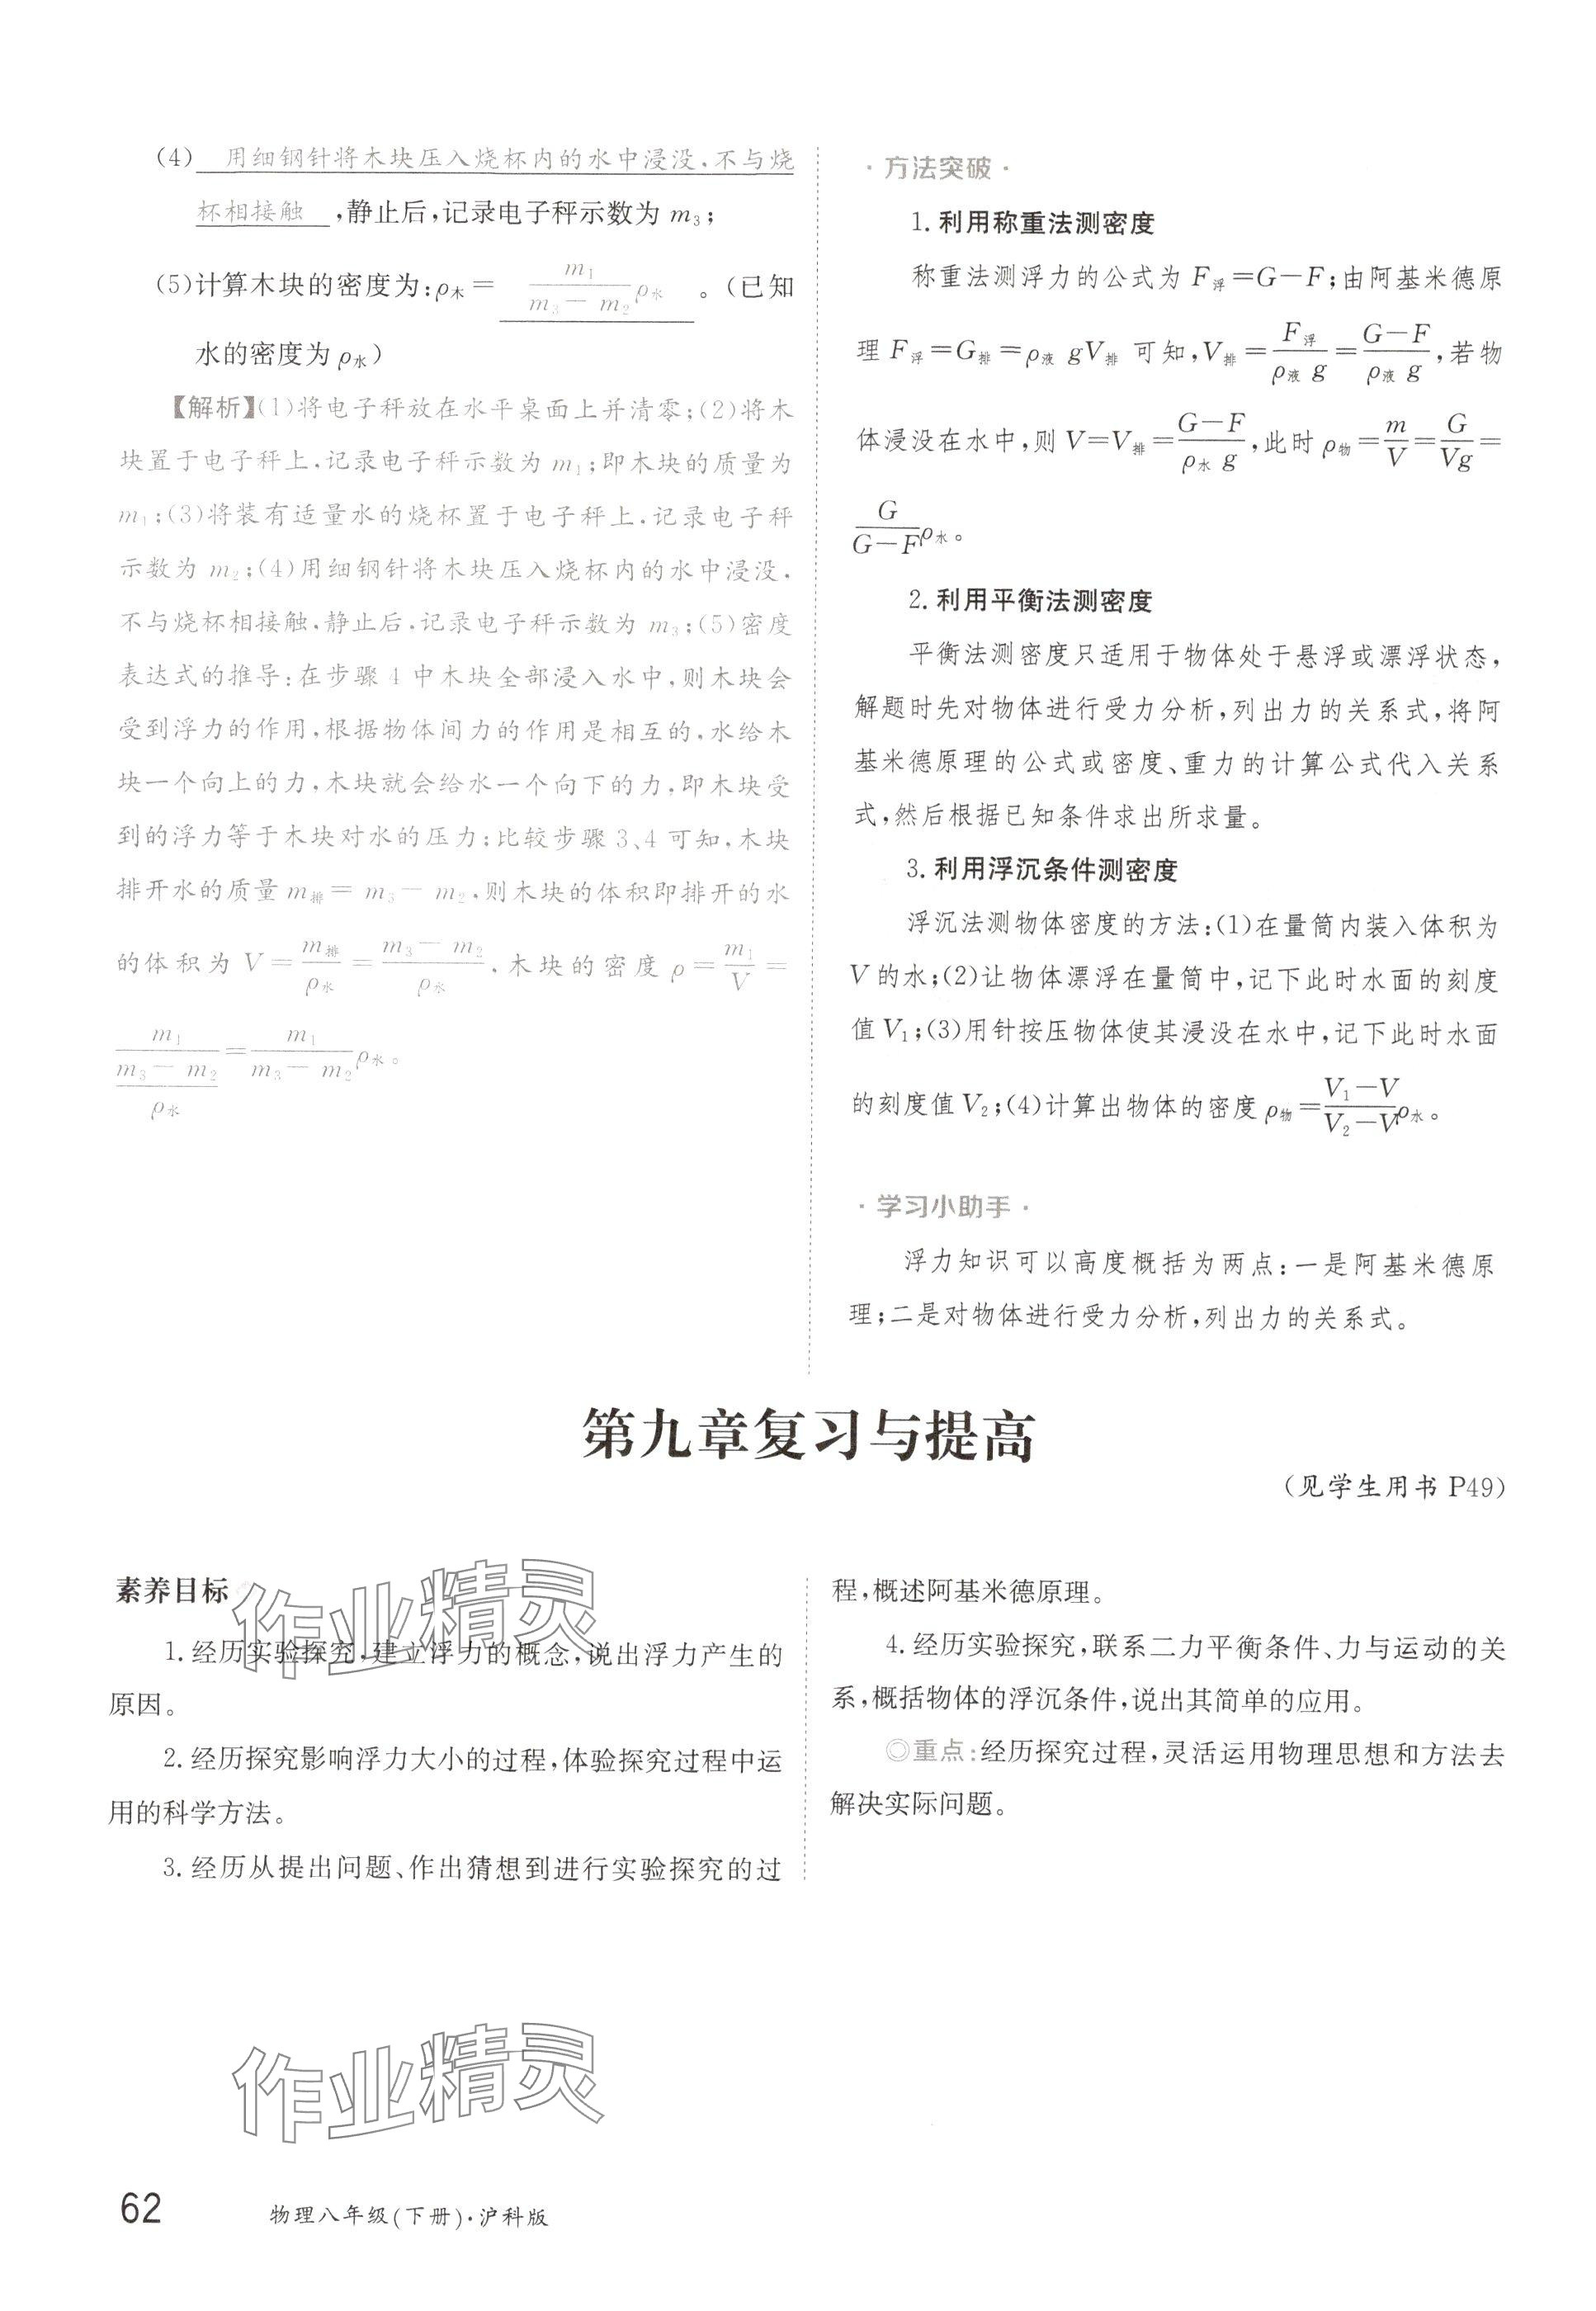 (4) 用细钢针将木块压入烧杯内的水中浸没,不与烧
杯相接触 ,静止后,记录电子秤示数为 m₃;
(5)计算木块的密度为:ρ木= m₁/(m₃-m₂)ρ水 。(已知
水的密度为 ρ水)
【解析】(1)将电子秤放在水平桌面上并清零;(2)将木
块置于电子秤上,记录电子秤示数为 m₁;即木块的质量为
m₁;(3)将装有适量水的烧杯置于电子秤上,记录电子秤
示数为 m₂;(4)用细钢针将木块压入烧杯内的水中浸没,
不与烧杯相接触,静止后,记录电子秤示数为 m₃;(5)密度
表达式的推导:在步骤 4 中木块全部浸入水中,则木块会
受到浮力的作用,根据物体间力的作用是相互的,水给木
块一个向上的力,木块就会给水一个向下的力,即木块受
到的浮力等于木块对水的压力;比较步骤 3、4 可知,木块
排开水的质量 m排=m₃-m₂,则木块的体积即排开的水
的体积为 V=m排/ρ水=(m₃-m₂)/ρ水,木块的密度 ρ=m₁/V=
m₁/((m₃-m₂)/ρ水)=m₁/(m₃-m₂)ρ水。
·方法突破·
1. 利用称重法测密度
称重法测浮力的公式为 F浮=G-F;由阿基米德原
理 F浮=G排=ρ液 gV排 可知,V排=F浮/(ρ液 g)=(G-F)/(ρ液 g),若物
体浸没在水中,则 V=V排=(G-F)/(ρ水 g),此时 ρ物=m/V=G/(Vg)=
G/(G-F)ρ水。
2. 利用平衡法测密度
平衡法测密度只适用于物体处于悬浮或漂浮状态,
解题时先对物体进行受力分析,列出力的关系式,将阿
基米德原理的公式或密度、重力的计算公式代入关系
式,然后根据已知条件求出所求量。
3. 利用浮沉条件测密度
浮沉法测物体密度的方法:(1)在量筒内装入体积为
V 的水;(2)让物体漂浮在量筒中,记下此时水面的刻度
值 V₁;(3)用针按压物体使其浸没在水中,记下此时水面
的刻度值 V₂;(4)计算出物体的密度 ρ物=(V₁-V)/(V₂-V)ρ水。
·学习小助手·
浮力知识可以高度概括为两点:一是阿基米德原
理;二是对物体进行受力分析,列出力的关系式。
第九章复习与提高
(见学生用书 P49)
素养目标
1. 经历实验探究,建立浮力的概念,说出浮力产生的
原因。
2. 经历探究影响浮力大小的过程,体验探究过程中运
用的科学方法。
3. 经历从提出问题、作出猜想到进行实验探究的过
程,概述阿基米德原理。
4. 经历实验探究,联系二力平衡条件、力与运动的关
系,概括物体的浮沉条件,说出其简单的应用。
◎重点:经历探究过程,灵活运用物理思想和方法去
解决实际问题。
作业精灵
作业精灵
62 物理八年级(下册)·沪科版